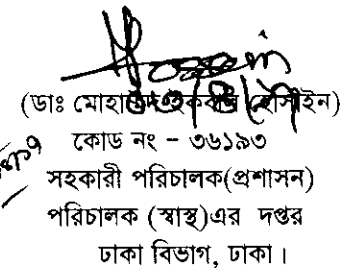 (ডাঃ মোহাম্মদ ইকবাল হোসাইন)
কোড নং - ৩৬১৯৩
সহকারী পরিচালক(প্রশাসন)
পরিচালক (স্বাস্থ)এর দপ্তর
ঢাকা বিভাগ, ঢাকা।